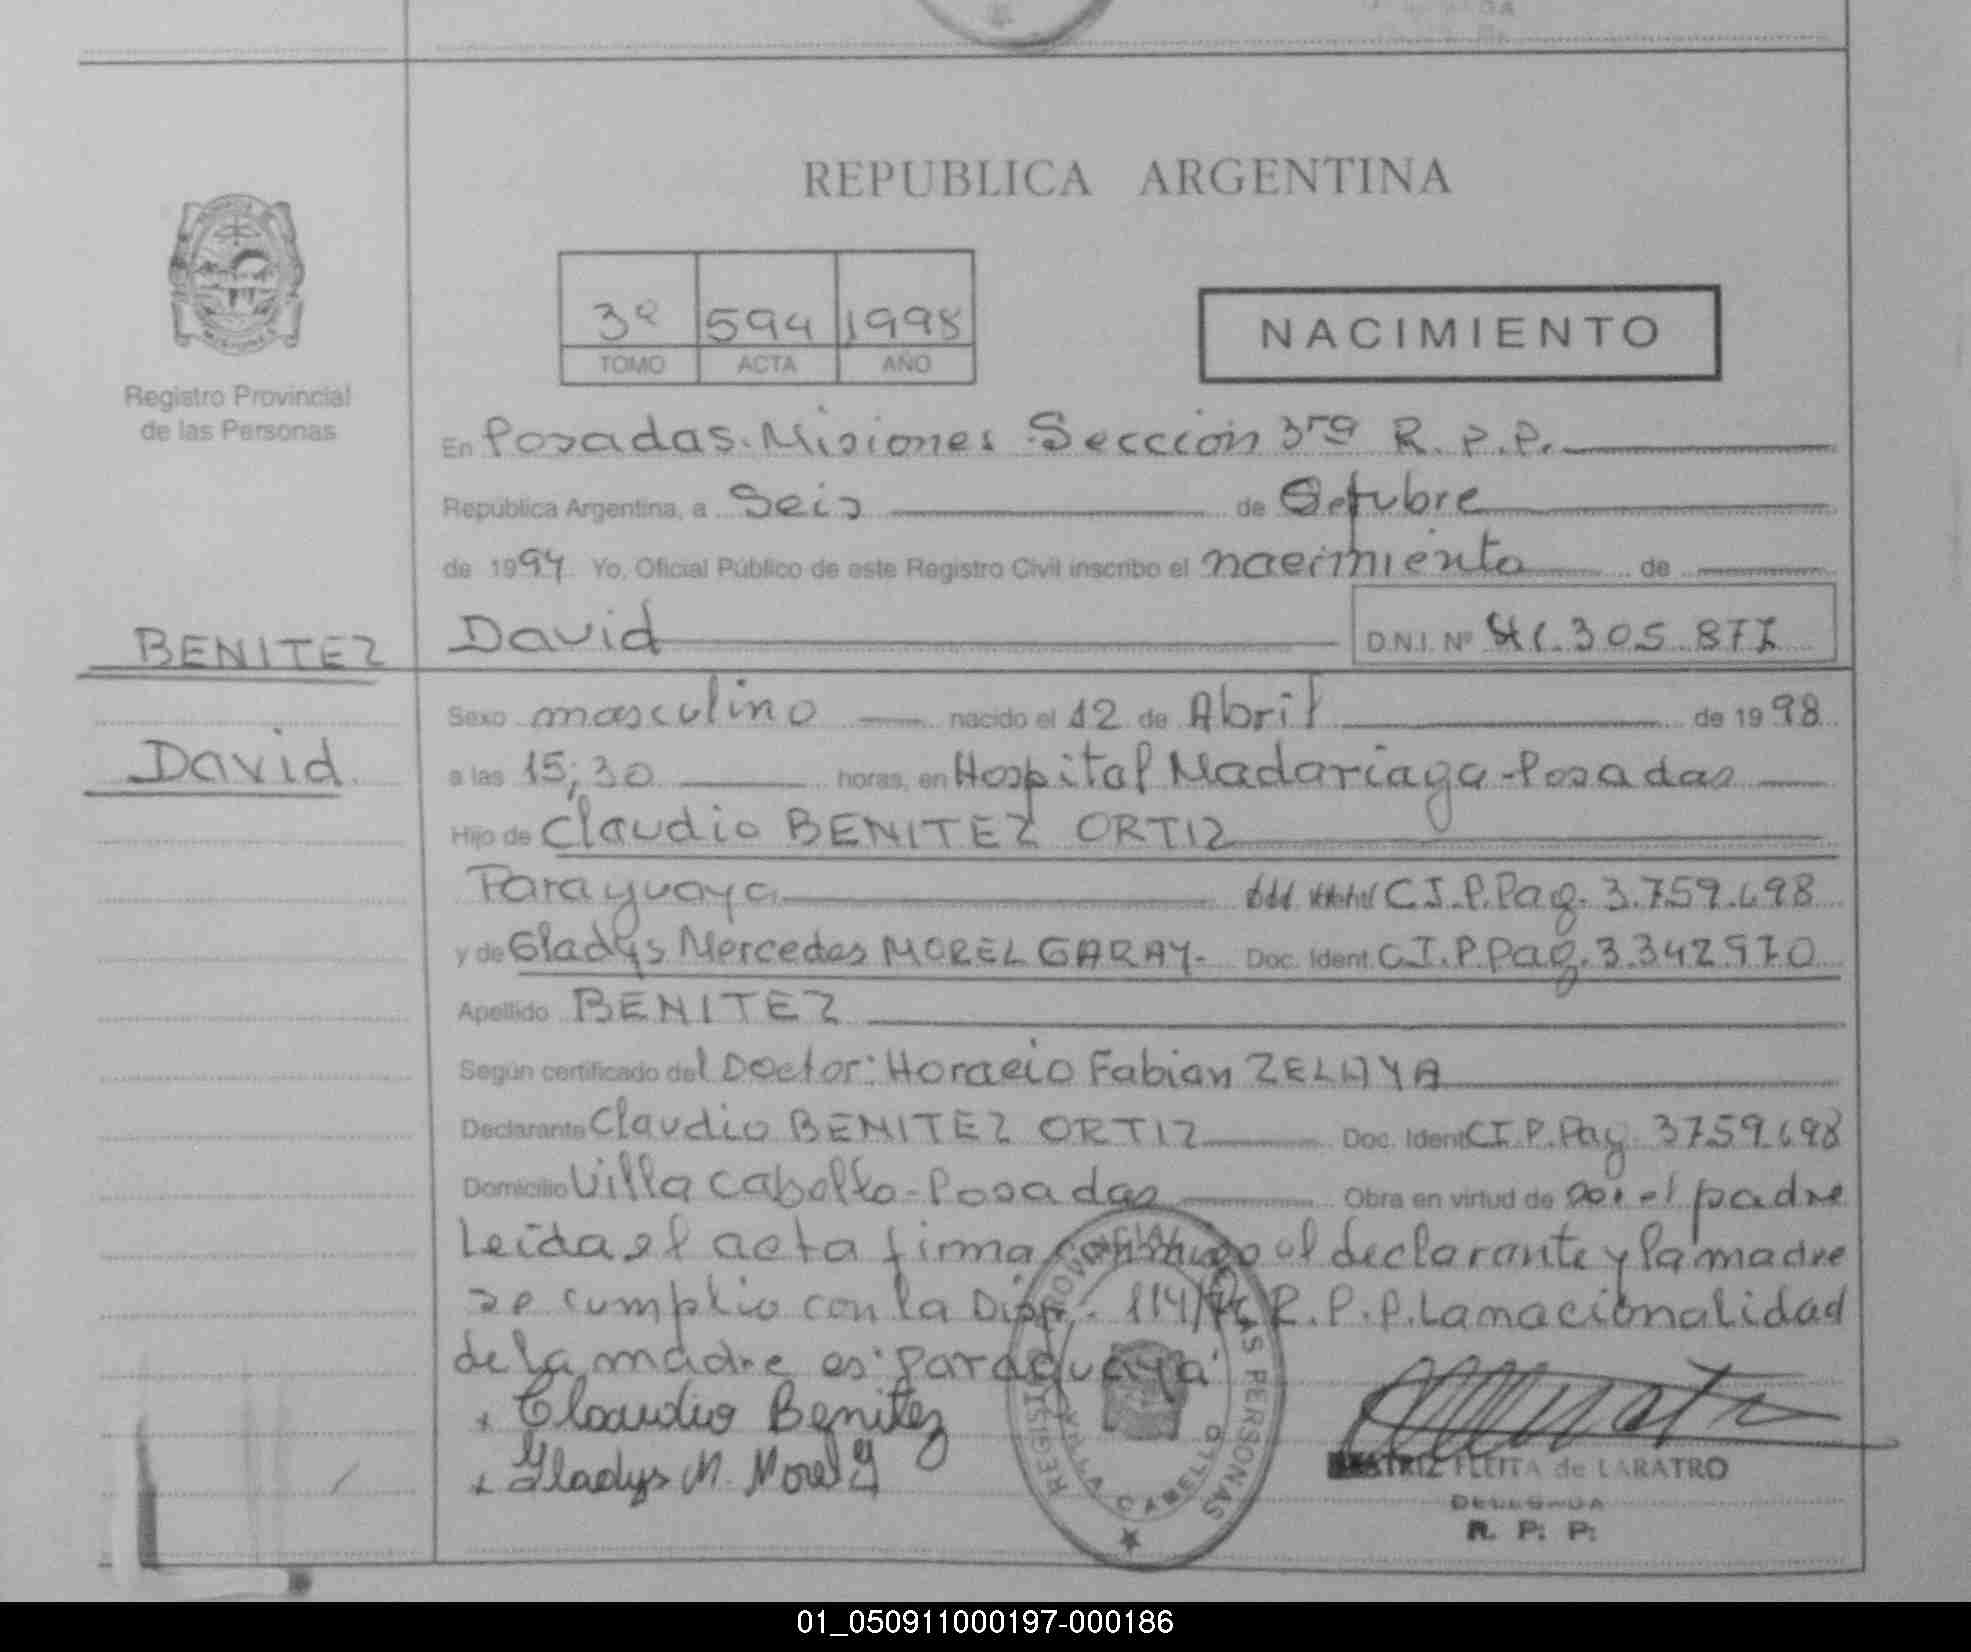 REPUBLICA ARGENTINA
3º 594 1998
TOMO ACTA AÑO
NACIMIENTO
Registro Provincial
de las Personas
En Posadas. Misiones Sección 3ra R. P. P.
República Argentina, a Seis de Octubre
de 19 Yo, Oficial Público de este Registro Civil inscribo el nacimiento de
BENITEZ
David
David D.N.I. Nº
Sexo masculino nacido el 12 de Abril de 1998
a las 15;30 horas, en Hospital Madariaga - Posadas
Hijo de Claudio BENITEZ ORTIZ
Paraguaya C.I.P.Pag. 3.759.698
y de Gladys Mercedes MOREL GARAY.- Doc. Ident. C.I.P.Pag. 3.342.970
Apellido BENITEZ
Según certificado del Doctor: Horacio Fabian ZELAYA
Declarante Claudio BENITEZ ORTIZ Doc. Ident C.I.P.Pag. 3759.698
Domicilio Villa Cabello - Posadas Obra en virtud de ser el padre
Leída el acta firma conmigo el declarante y la madre
se cumplio con la Disp. 114/ R.P.P. La nacionalidad
de la madre es: paraguaya
x Claudio Benitez
x Gladys M. Morel G
REGISTRO PROVINCIAL DE LAS PERSONAS
VILLA CABELLO
BEATRIZ FLEITA de LARATRO
DELEGADA
R. P. P.
01_050911000197-000186